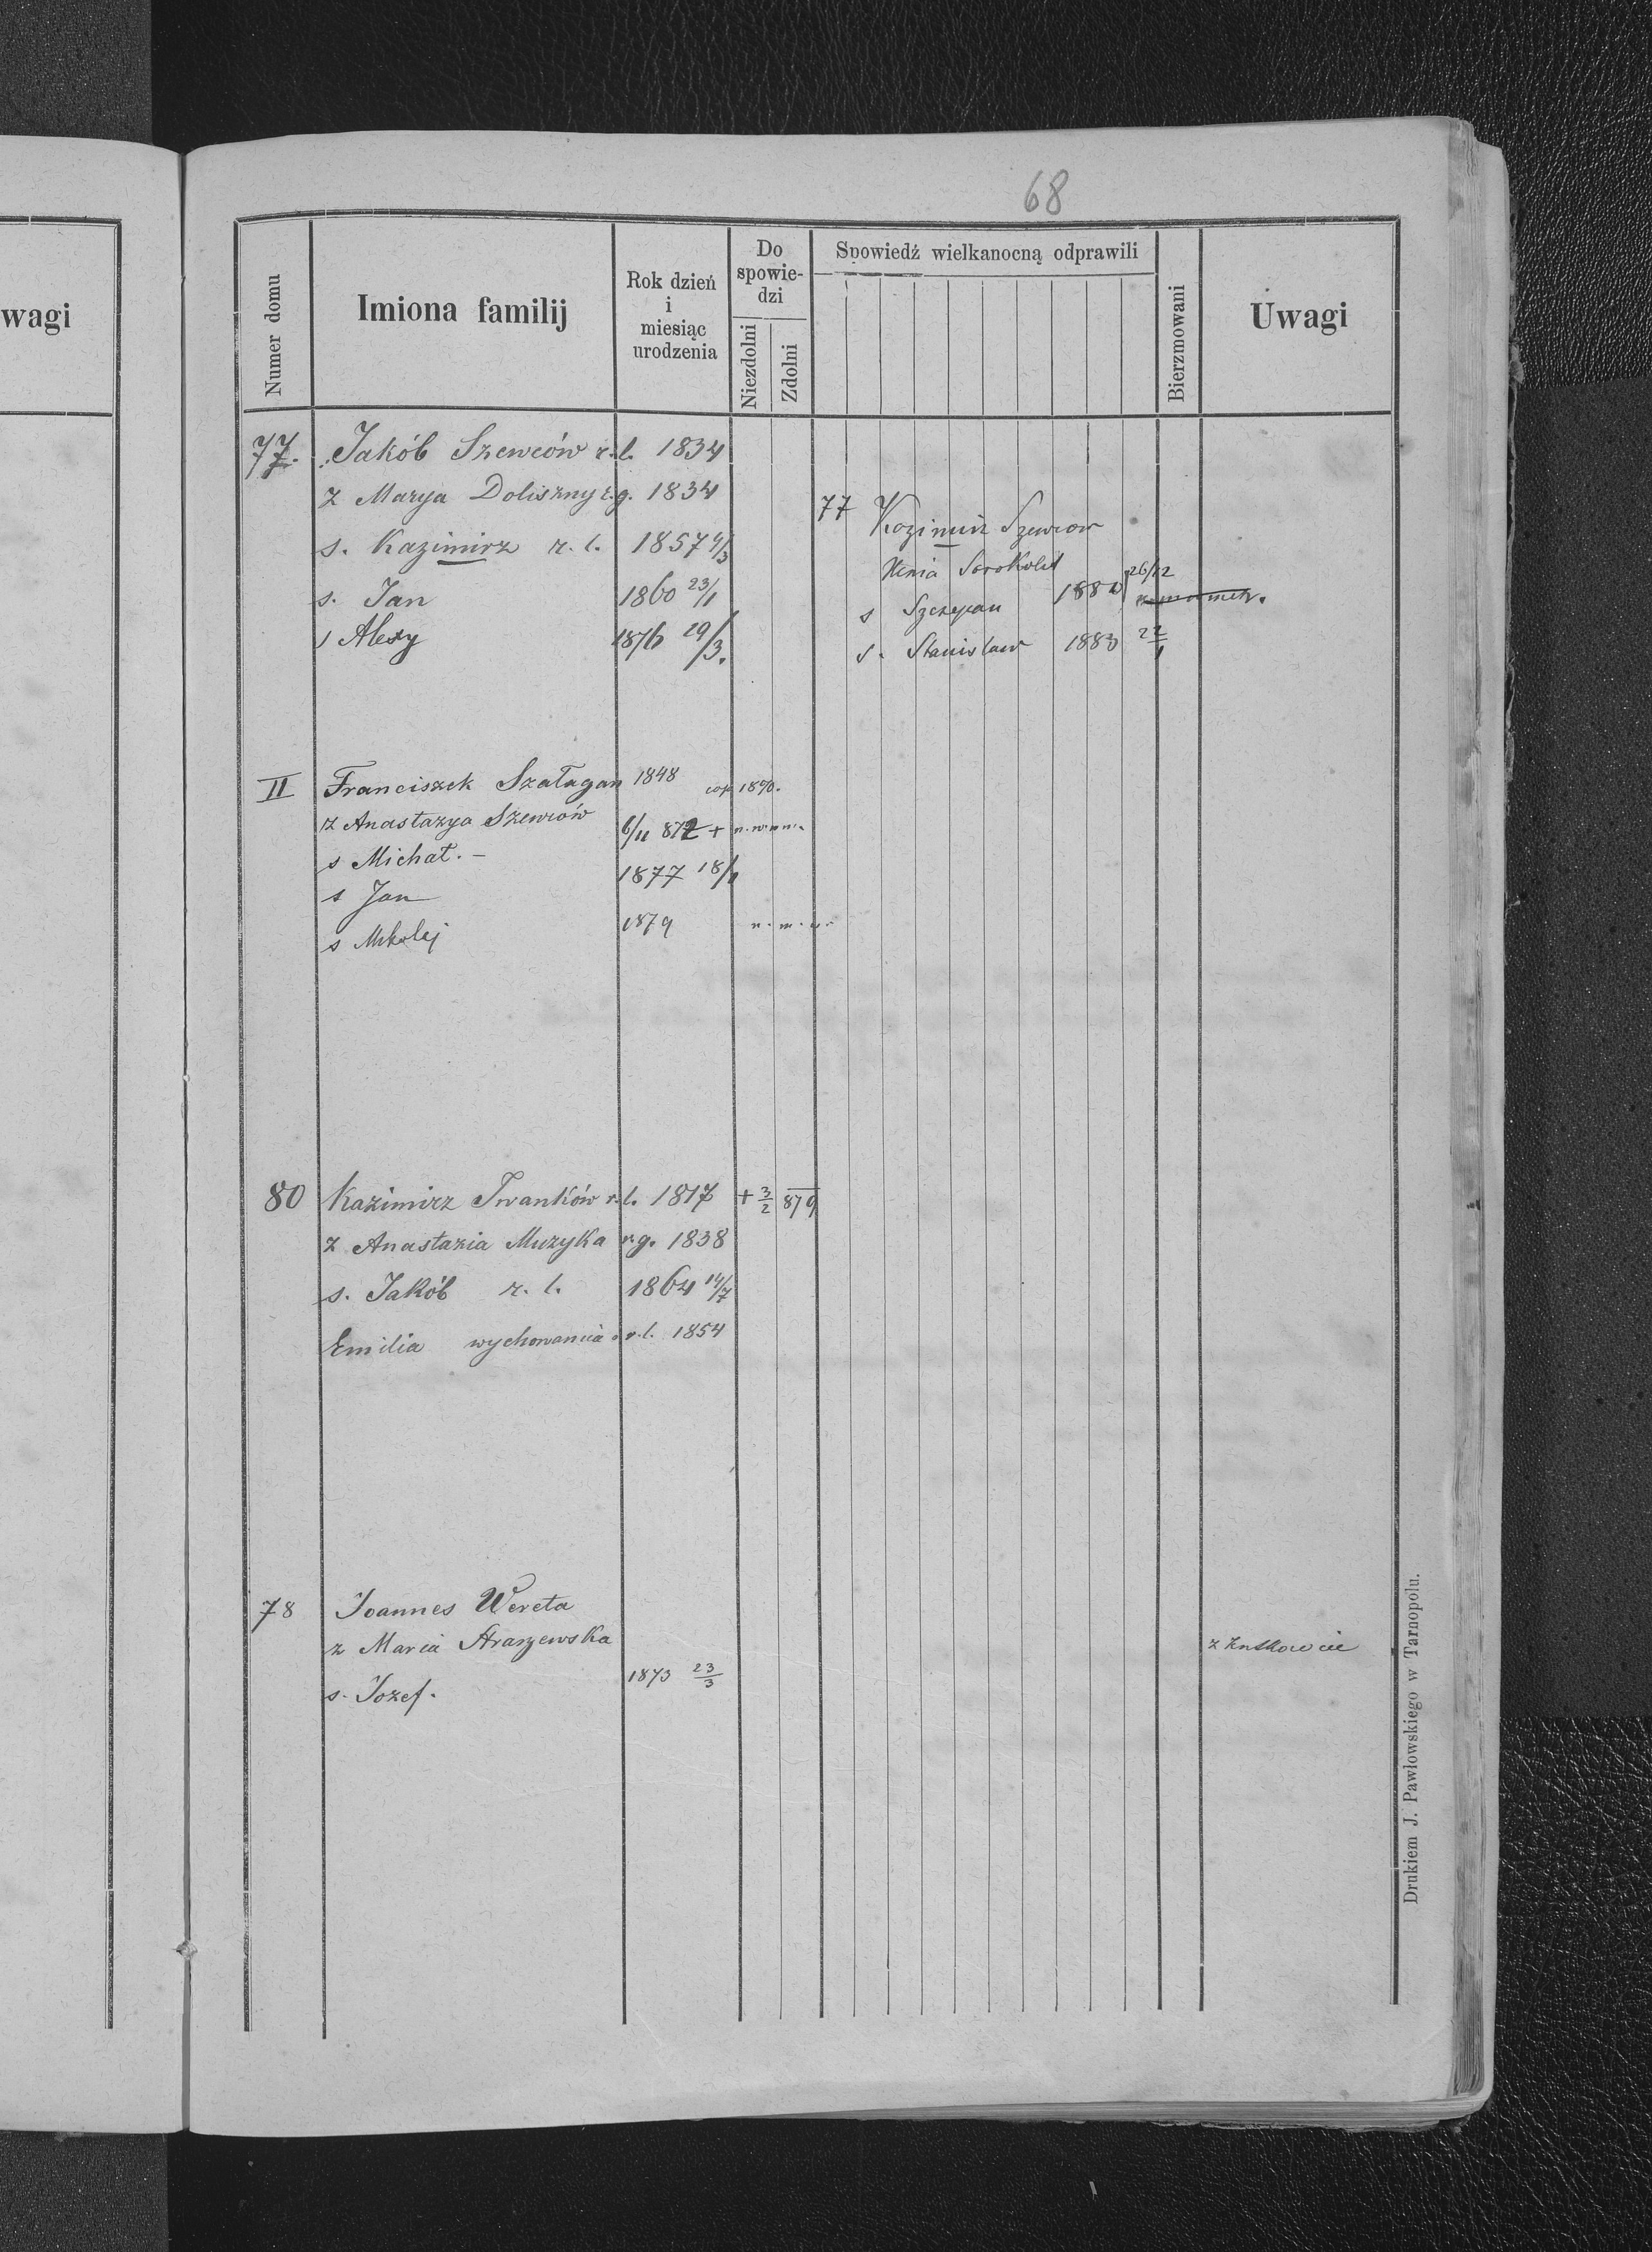 68
wagi
Numer domu
Imiona familij
Rok dzień i miesiąc urodzenia
Do spowie-dzi
Niezdolni
Zdolni
Spowiedź wielkanocną odprawili
Bierzmowani
Uwagi
77. Jakób Szewców r. l. 1834
z Marya Doliszny r. g. 1834
s. Kazimirz r. l. 1857 4/3
s. Jan 1860 23/1
s Alexy 1876 29/3.
77 Kazimirz Szewcow
Sorokolit
s Szczepan 1880 26/12
s. Stanislaw 1883 22/1
II Franciszek Szałagan 1848 cop 1870.
z Anastazya Szewców
s Michał. – 6/11 872 +
s Jan 1877 18/11
s Mikolej 1879
80 Kazimirz Iwanków r. l. 1817 + 3/2 879
z Anastazia Muzyka r. g. 1838
s. Jakób r. l. 1864 14/7
Emilia wychowanica r. l. 1854
78 Joannes Wereta
z Maria
s. Jozef. 1873 23/3
Drukiem J. Pawłowskiego w Tarnopolu.